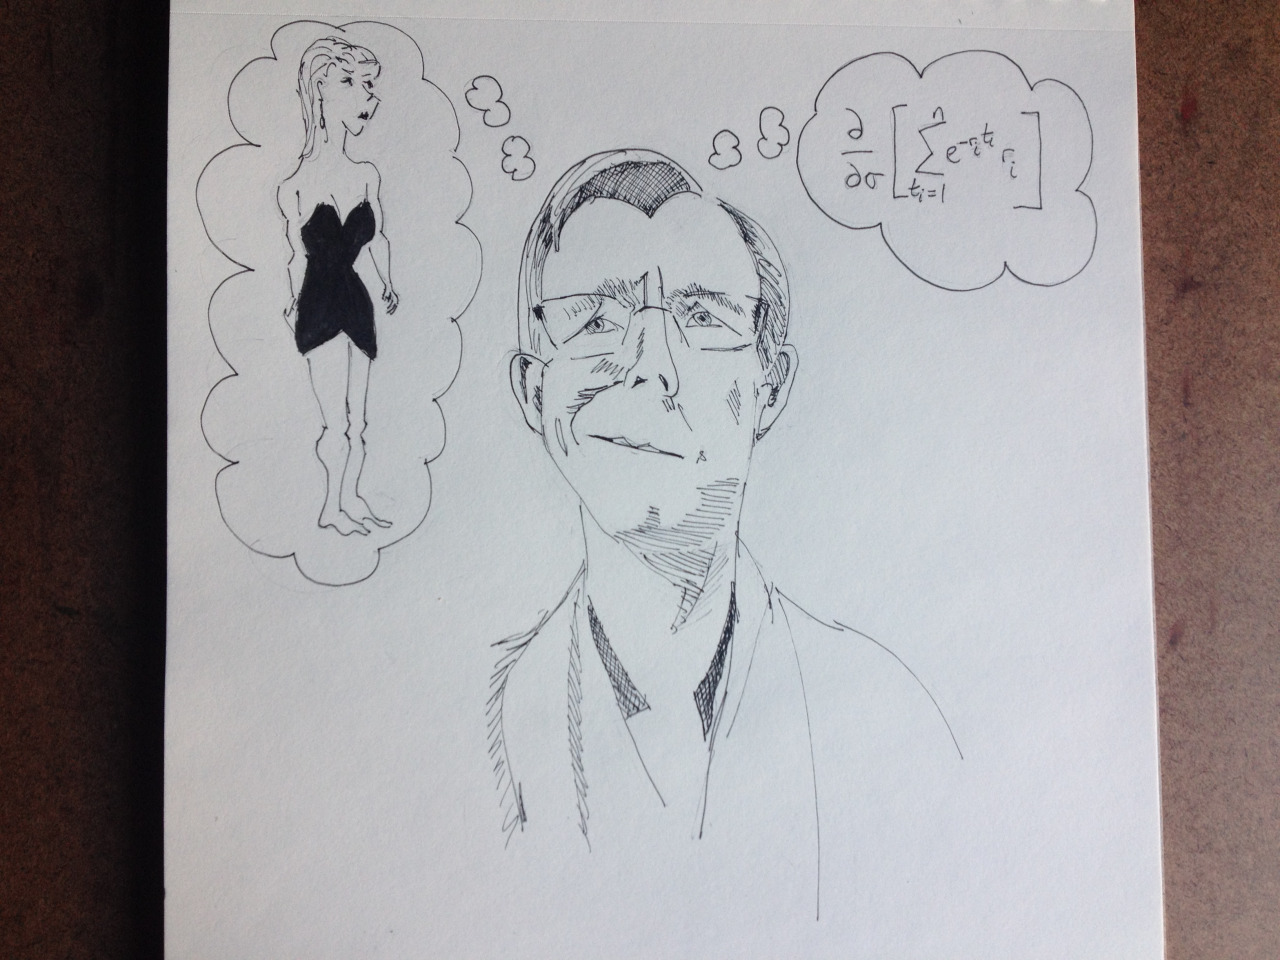 ∂/∂σ [ n∑tᵢ=1 e^(-rᵢtᵢ) rᵢ ]